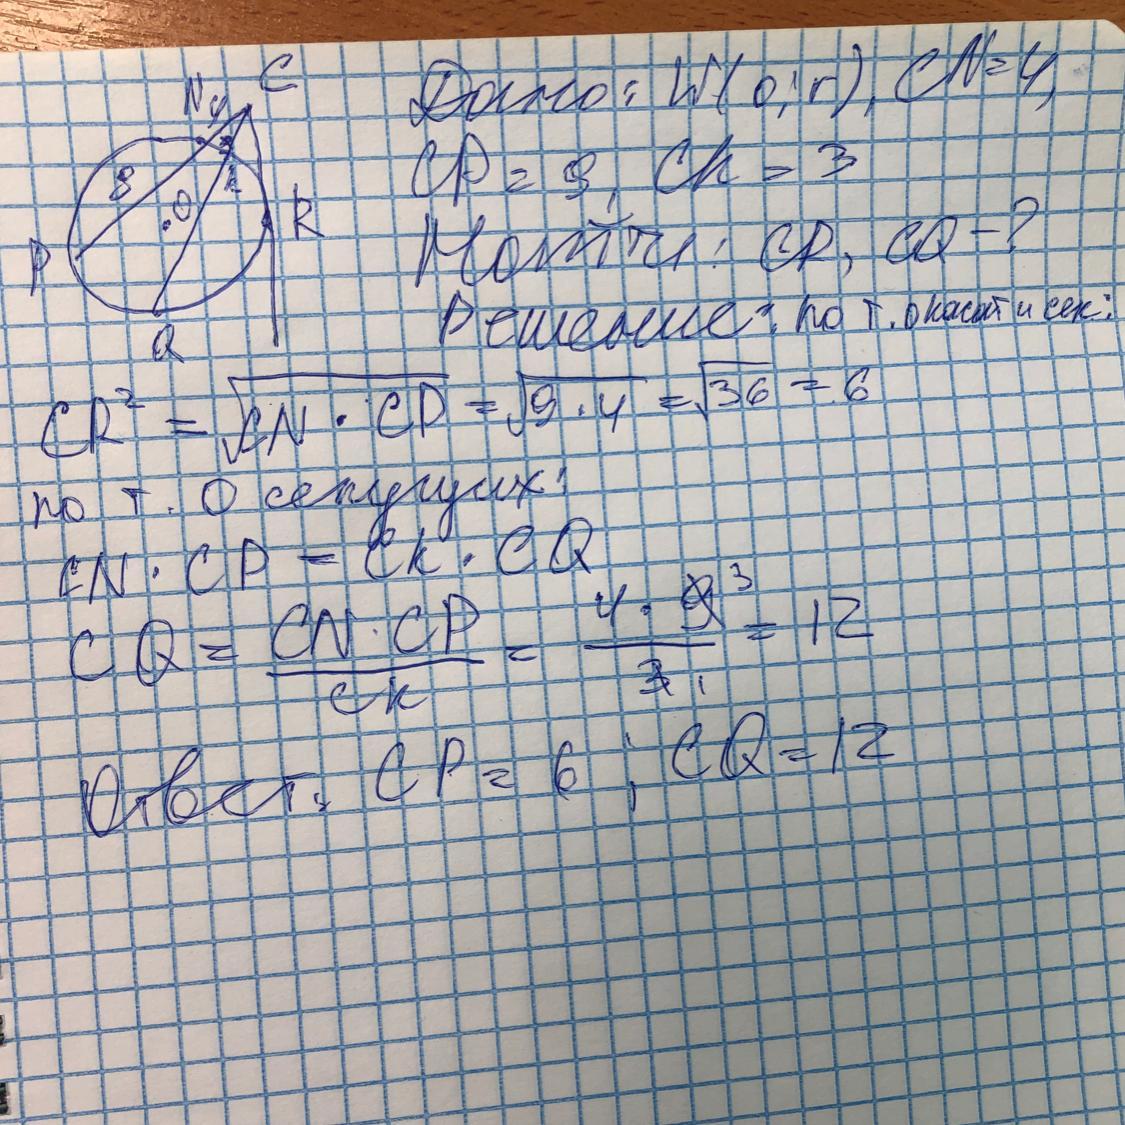 C
N 4
3
8
K
O
R
P
Q
Дано: W(o;r), CN=4,
CP = 9, CK = 3
Найти: CR, CQ-?
Решение: по т. о касат и сек:
CR² = √CN · CP = √9·4 = √36 = 6
по т. О секущих:
CN · CP = CK · CQ
CQ = CN·CP / CK = 4 · 9 3 / 3 1 = 12
Ответ: CP = 6 ; CQ = 12